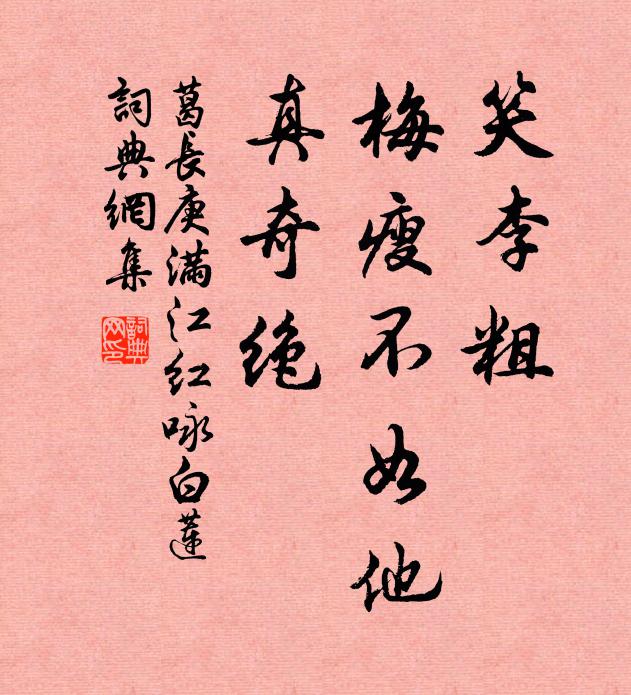 笑李粗
梅瘦不如他
真奇绝
葛長庚满江红咏白蓮
詞典網集
詞典网印